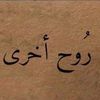 رُوح أخرى